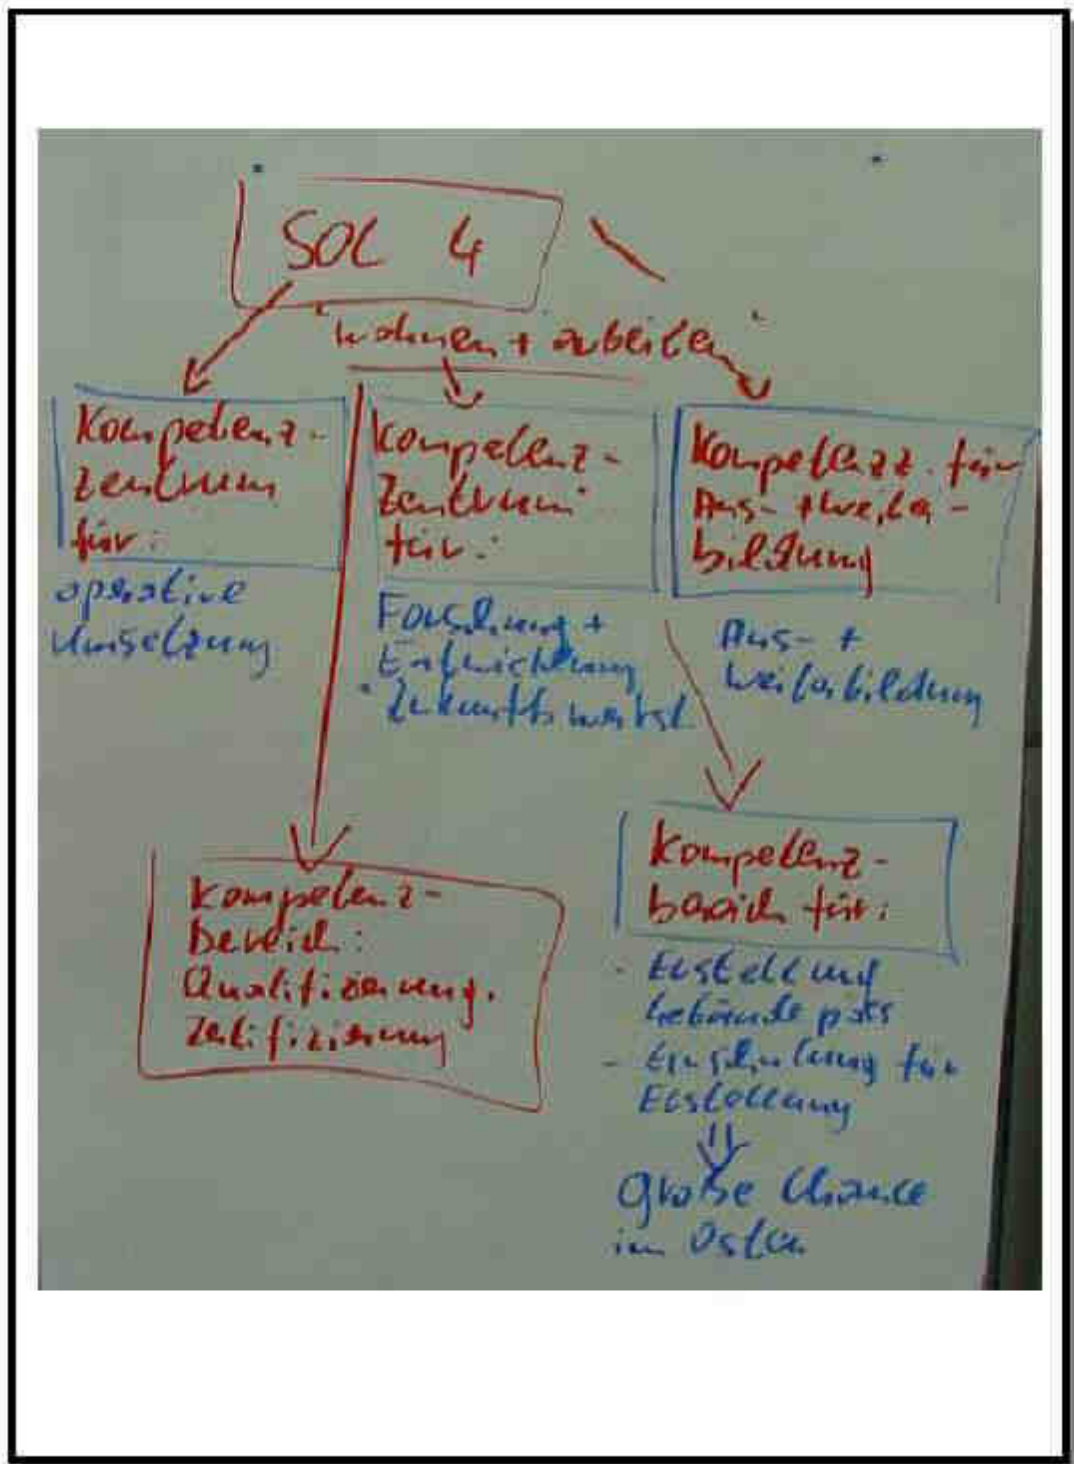 SOL 4
"wohnen + arbeiten"
Kompetenz-
zentrum
für:
operative
Umsetzung
Kompetenz-
Zentrum
für:
Forschung +
Entwicklung
"Zukunftswerkst
Kompetenzz. für
Aus- + Weiter-
bildung
Aus- +
Weiterbildung
Kompetenz-
bereich:
Qualifizierung.
Zertifizierung
Kompetenz-
bereich für:
- Erstellung
Gebäudepass
- Einschulung für
Erstellung
große Chance
im Osten